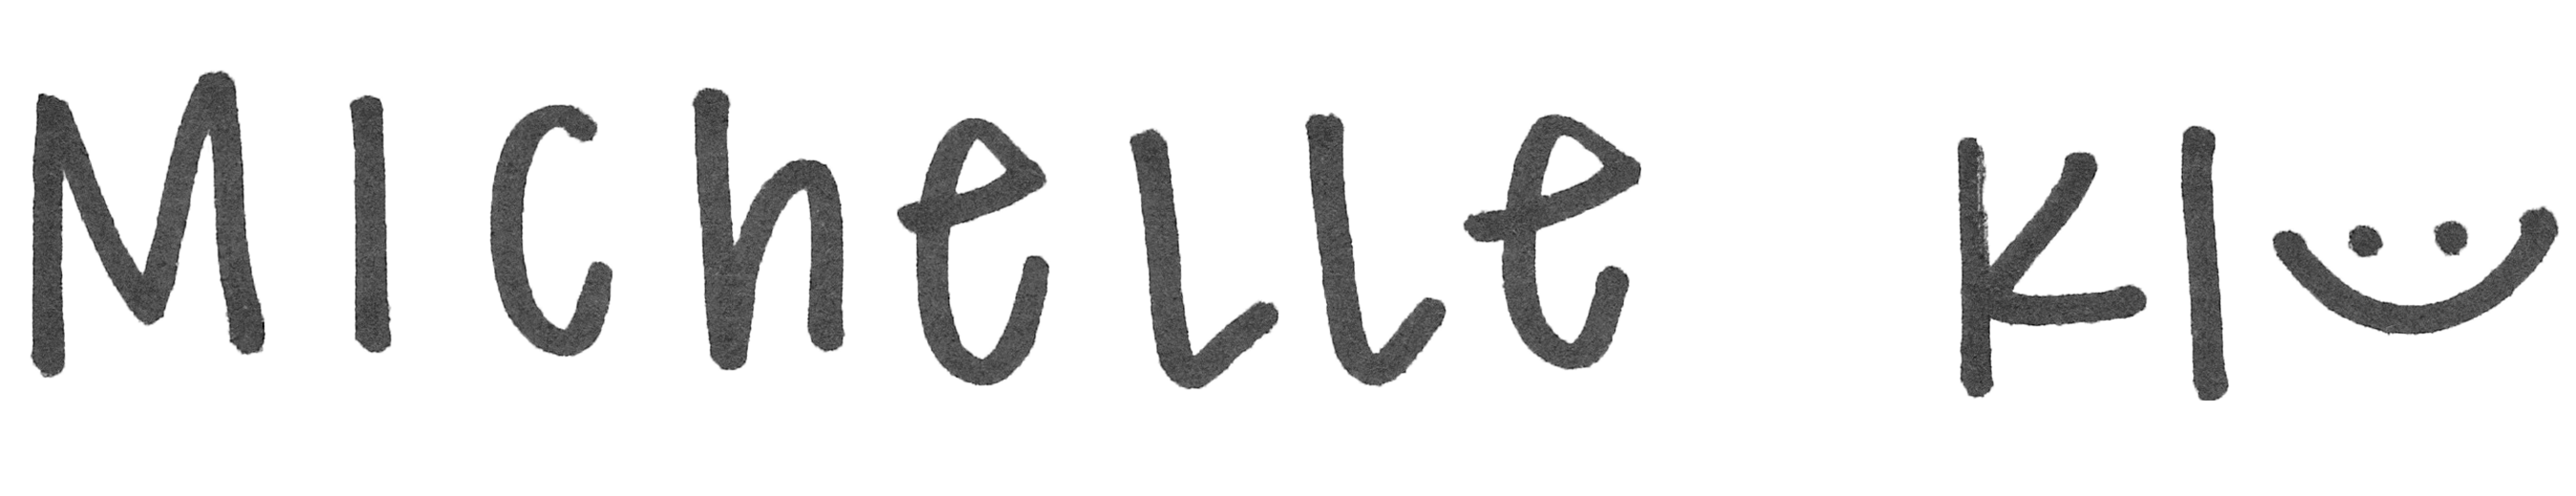 MIchelle KI